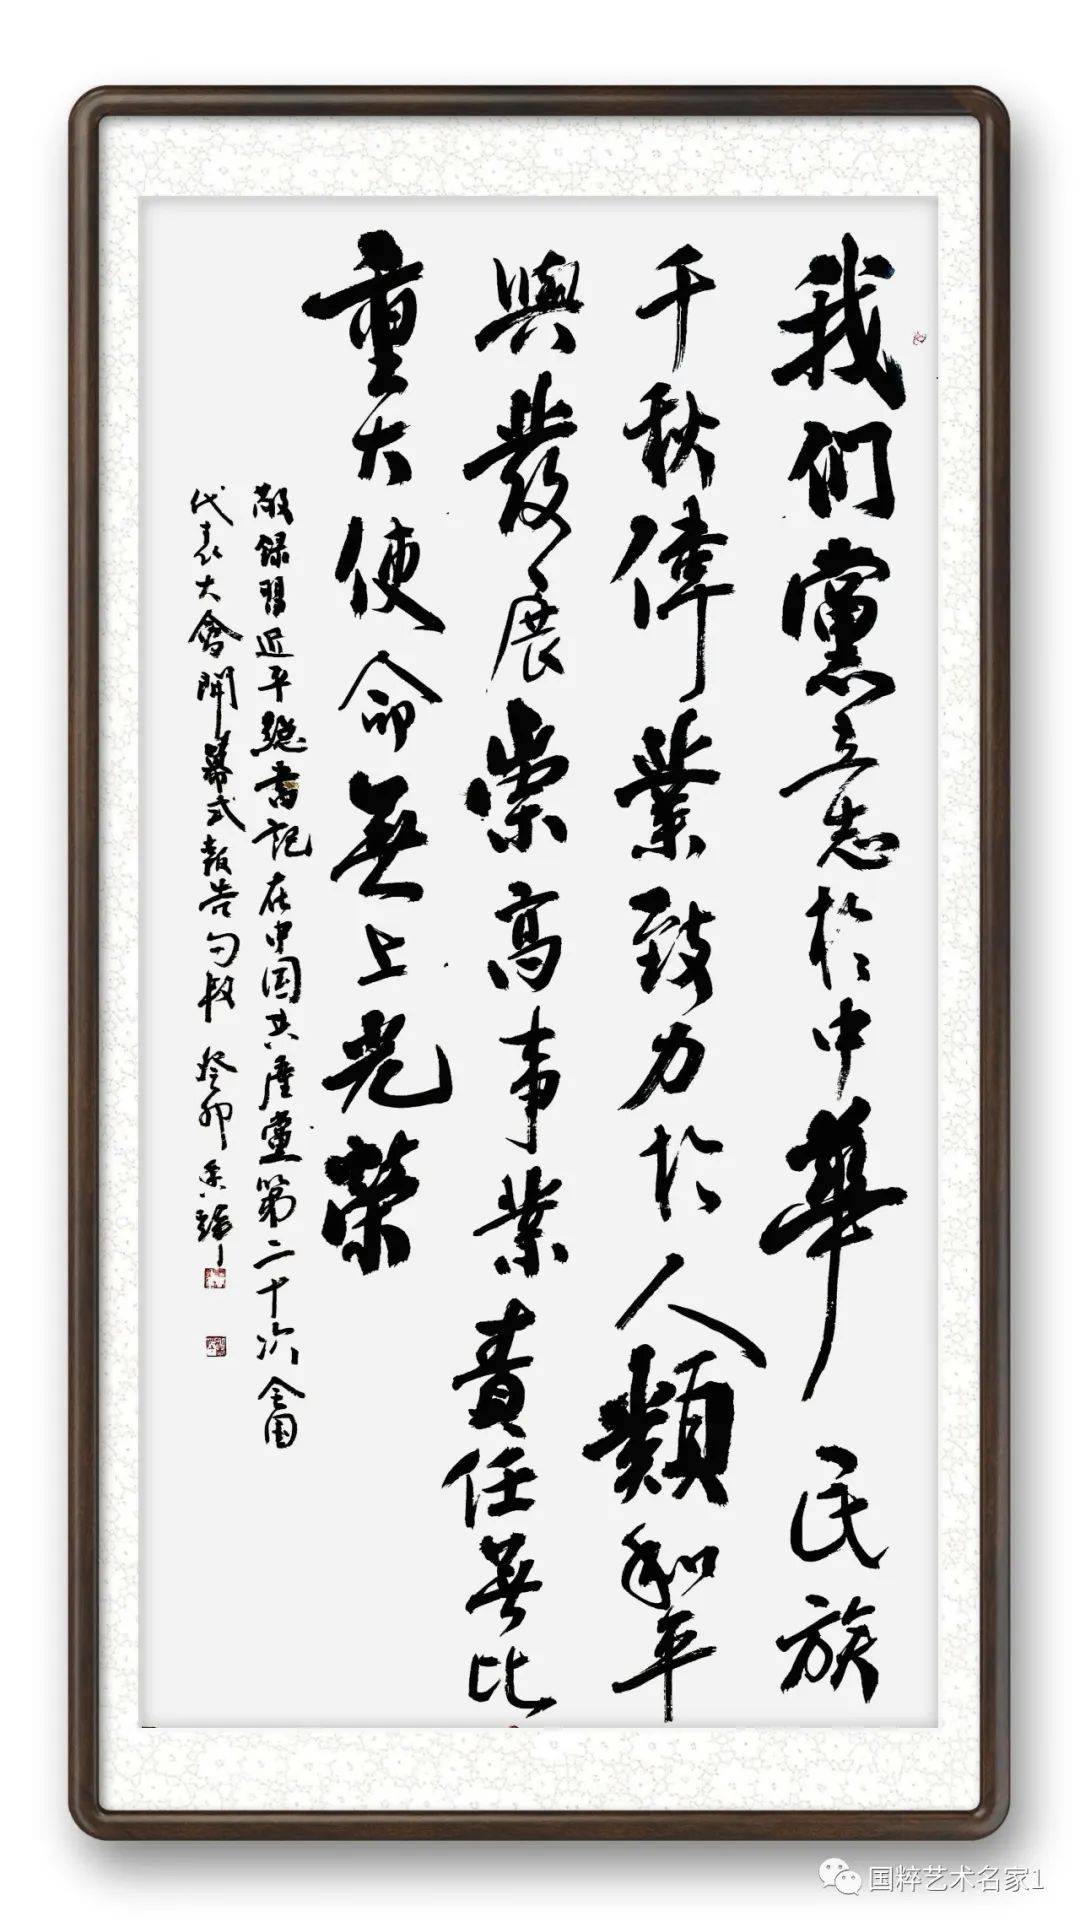 我们黨立志於中華民族
千秋偉業致力於人類和平
與發展崇高事業責任無比
重大使命無上光榮
敬録習近平總書記在中国共產黨第二十次全国
代表大會開幕式報告句段 癸卯
国粹艺术名家1